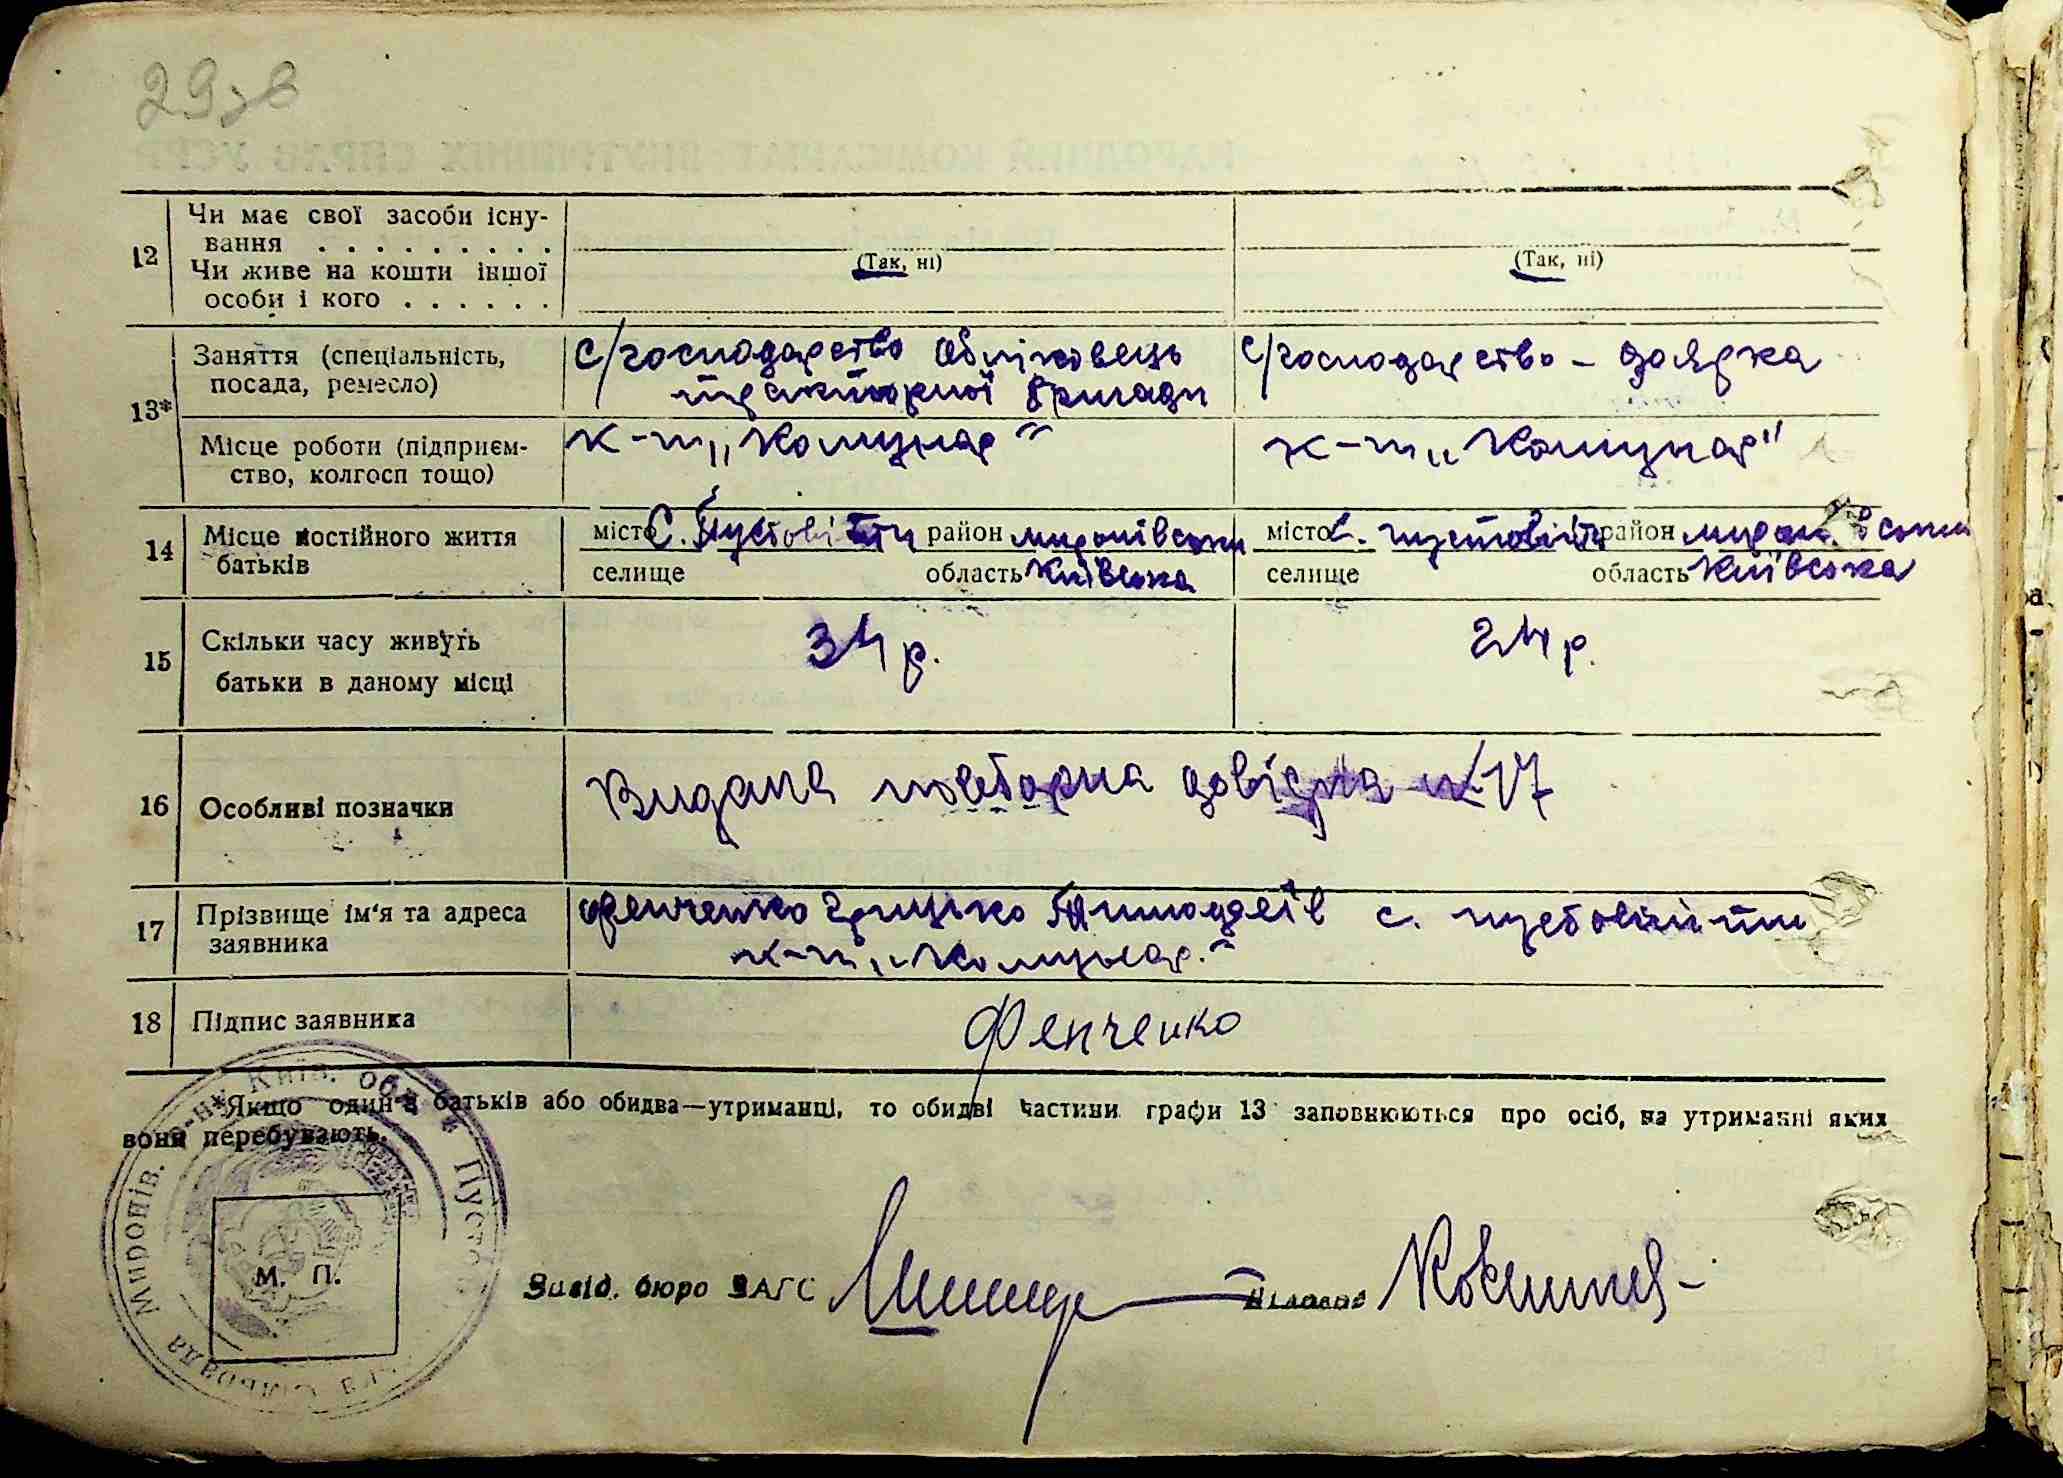 29зв
12
Чи має свої засоби існу-
вання . . . . . . . . .
Чи живе на кошти іншої
особи і кого . . . . . .
(Так, ні)
(Так, ні)
13*
Заняття (спеціальність,
посада, ремесло)
с/господарство обліковець
тракторної бригади
с/господарство – доярка
Місце роботи (підприєм-
ство, колгосп тощо)
к-п „Комунар"
к-п „Комунар"
14
Місце постійного життя
батьків
місто с. Пустовіти район миронівськи
селище область Київська
місто с. пустовіти район мирон.вськи
селище область Київська
15
Скільки часу живуть
батьки в даному місці
34 р.
24 р.
16
Особливі позначки
Видана повторна довідка №17
17
Прізвище ім'я та адреса
заявника
Фенченко Грицько с. пустовіити
к-п „Комунар."
18
Підпис заявника
Фенченко
*Якщо один з батьків або обидва—утриманці, то обидві частини графи 13 заповнюються про осіб, на утриманні яких
вони перебувають.
Миронів. р-н Київ. обл. Пусто
ка сільрада
М. П.
Завід. бюро ЗАГС
Діловод